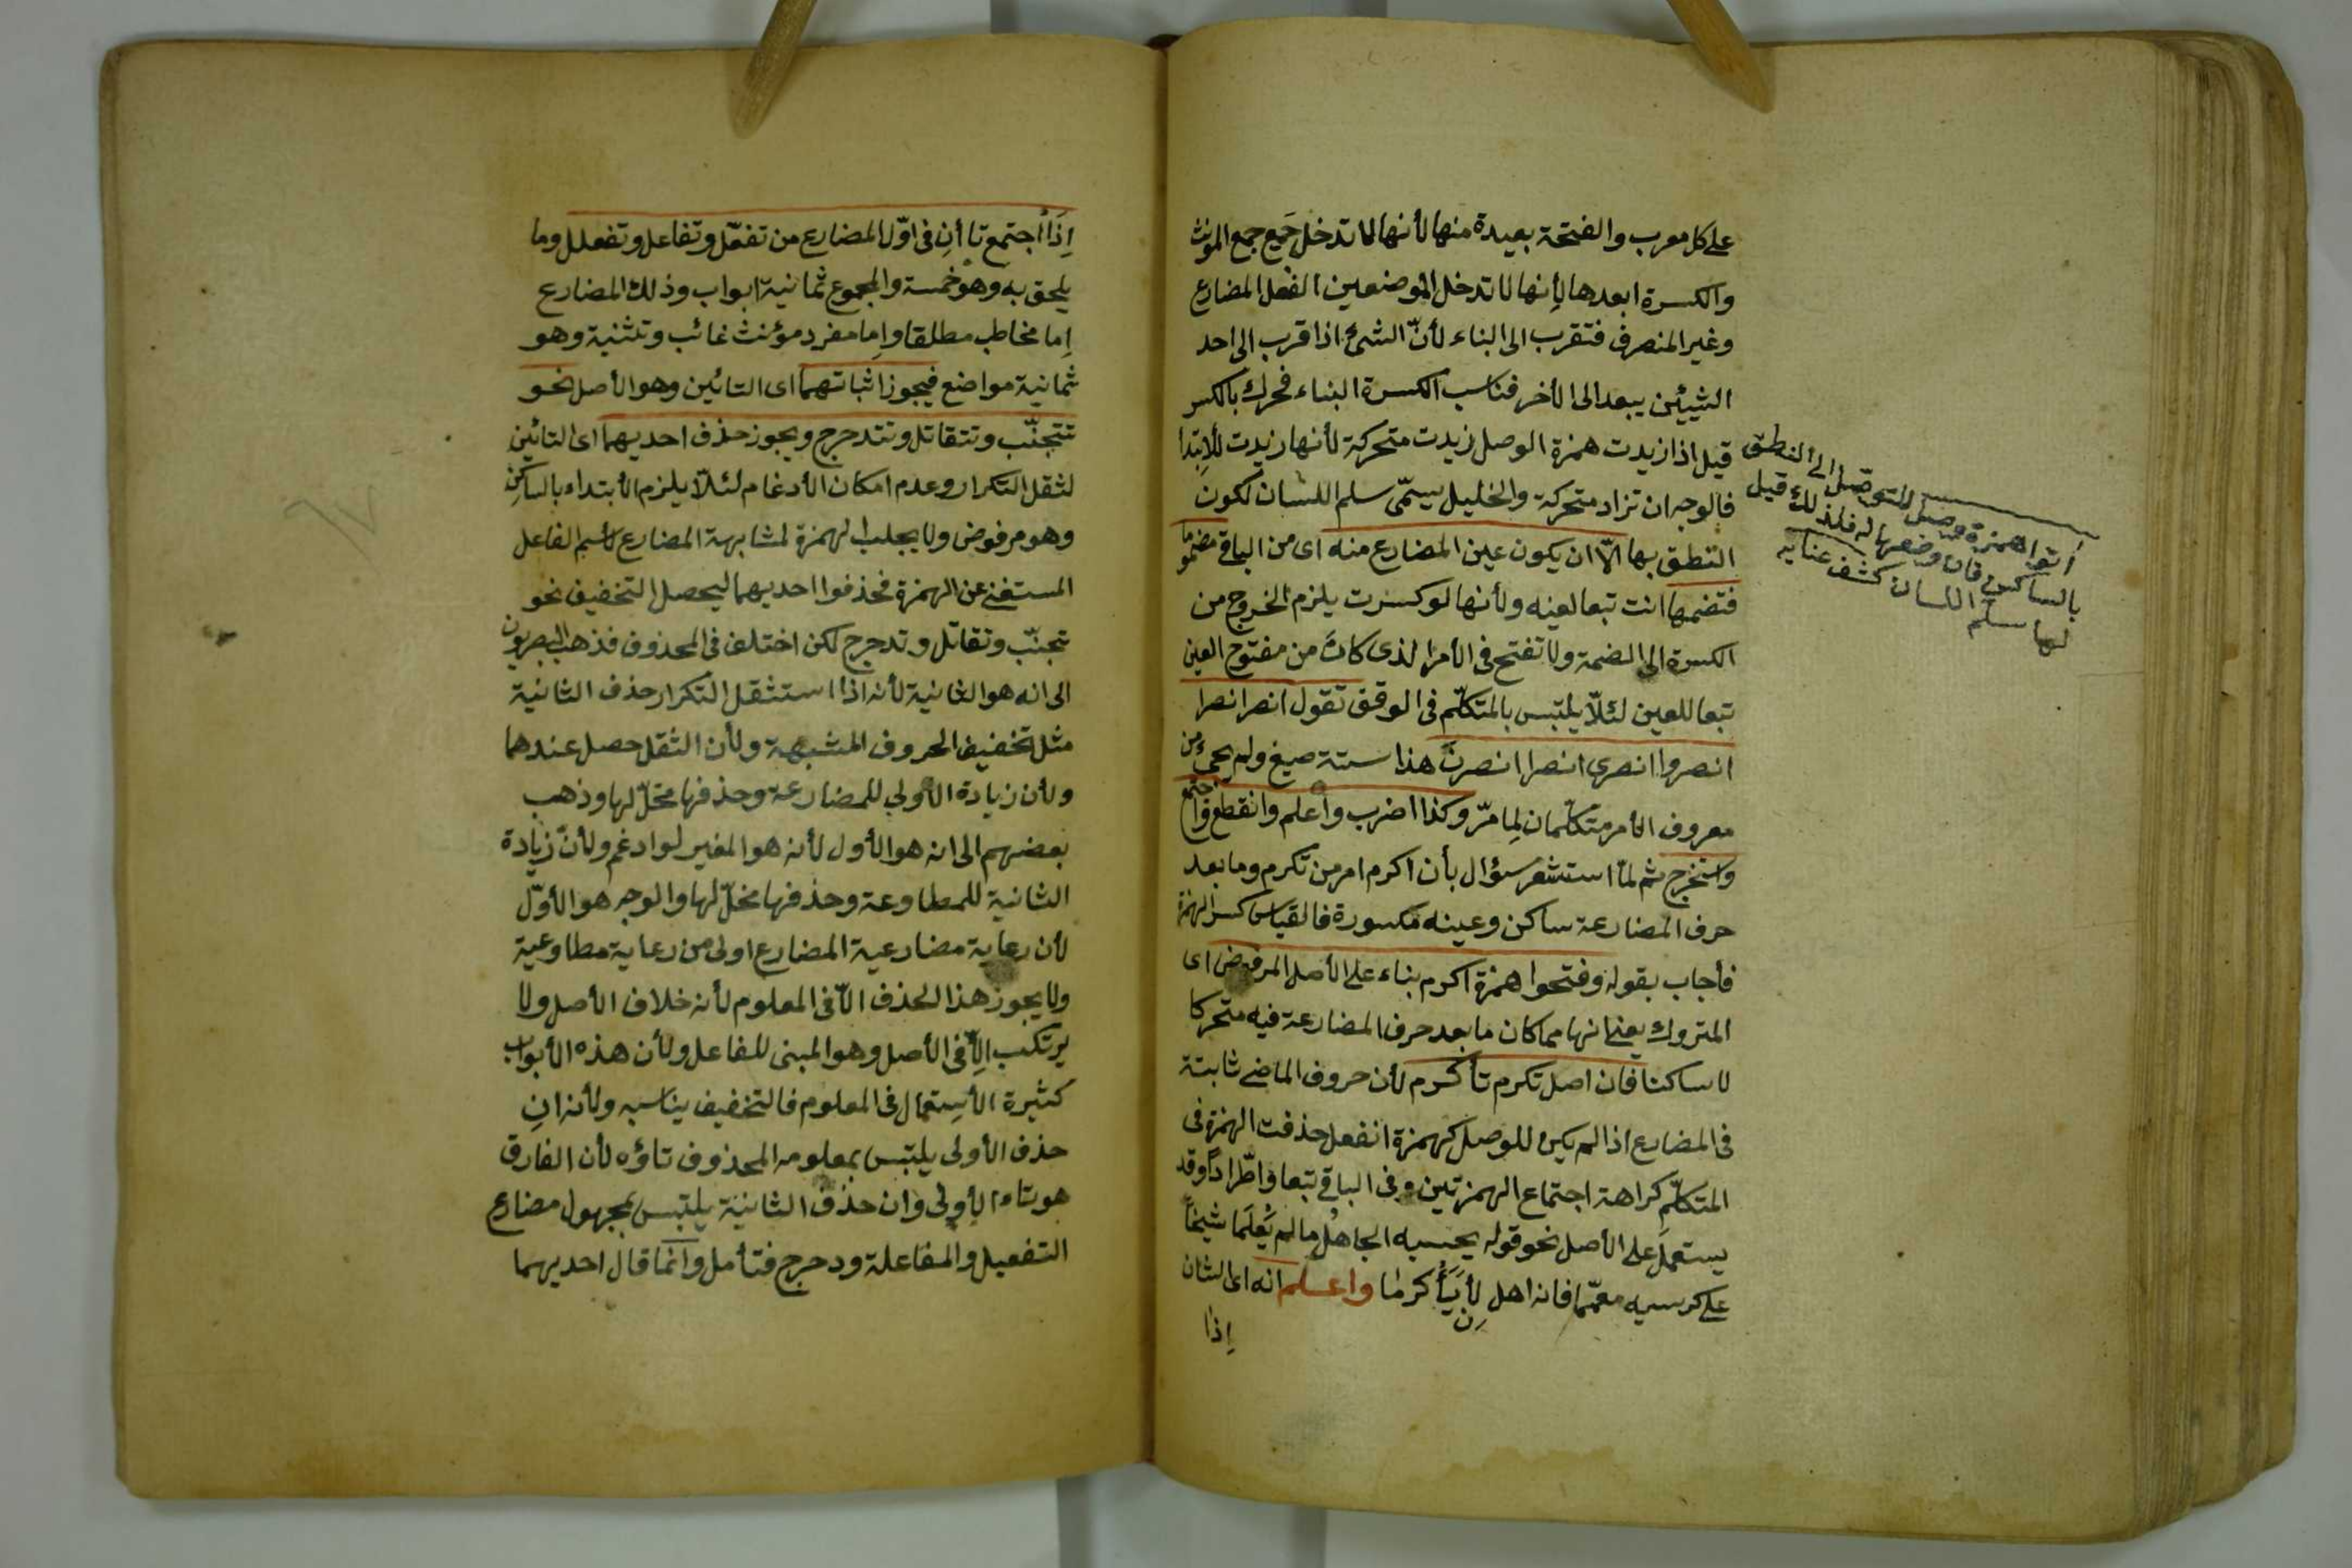 على كل معرب والفتحة بعيدة منها لأنها لا تدخل جميع جمع المؤنث
والكسرة ابعدها لأنها لا تدخل الموضعين الفعل المضارع
وغير المنصرف فتقرب الى البناء لأنّ الشئ اذا قرب الى احد
الشيئين يبعد الى الأخر فناسب الكسرة البناء فحرك بالكسر
قيل اذا زيدت همزة الوصل زيدت متحركة لأنها زيدت للأبتدا
فالوجه ان تزاد متحركة والخليل يسمّى سلم اللسان لكون
النطق بها الاّ ان يكون عين المضارع منه اى من الباقى مضموما
فتضمها انت تبعا لعينه ولأنها لو كسرت يلزم الخروج من
الكسرة الى الضمة ولا تفتح فى الأمر الذى كان من مفتوح العين
تبعا للعين لئلاّ يلتبس بالمتكلّم فى الوقف تقول انصر انصرا
انصروا انصرى انصرا انصرن هذا ستة صيغ ولم يجئ من
معروف الأمر متكلّمان لِما مرّ وكذا اضرب واعلم وانقطع واجتمع
واستخرج ثم لمّا استشعر سؤال بأن اكرم امر من تكرم وما بعد
حرف المضارعة ساكن وعينه مكسورة فالقياس كسر الهمزة
فأجاب بقوله وفتحوا همزة اكرم بناء على الأصل المرفوض اى
المتروك يعنى انها مما كان ما بعد حرف المضارعة فيه متحركا
لا ساكنا فان اصل تكرم تأكرم لأن حروف الماضى ثابتة
فى المضارع اذا لم يكن للوصل كهمزة انفعل حذفت الهمزة فى
المتكلّم كراهة اجتماع الهمزتين وفى الباقى تبعا واطّراداً وقد
يستعمل على الأصل نحو قوله يحسبه الجاهل ما لم يَعْلَما شيخاً
على كرسيه معمّما فانه اهل لأن يُأَكرما واعلم انه اى الشان
اِذا
أتوا همزة وصل للتوصّل الى النطق
بالساكن فان وضعها له فلذلك قيل
لها سلم اللسان كشف عنايه
اِذَا اجتمع تاأنِ فى اوّل المضارع من تفعّل وتفاعل وتفعلل وما
يلحق به وهو خمسة والمجموع ثمانية ابواب وذلك المضارع
اِما مخاطب مطلقا واِما مفرد مؤنث غائب وتثنية وهو
ثمانية مواضع فيجوز اثباتهما اى التائين وهو الأصل نحو
تتجنّب وتتقاتل وتتدحرج ويجوز حذف احديهما اى التائين
لثقل التكرار وعدم امكان الأدغام لئلاّ يلزم الأبتداء بالساكن
وهو مرفوض ولا يجلب الهمزة لمشابهة المضارع لأسم الفاعل
المستغنى عن الهمزة فحذفوا احديهما ليحصل التخفيف نحو
تجنّب وتقاتل وتدحرج لكن اختلف فى المحذوف فذهب البصريون
الى انه هو الثانية لأنه اذا استثقل التكرار حذف الثانية
مثل تخفيف الحروف المشبهة ولأن الثقل حصل عندها
ولأن زيادة الأولى للمضارعة وحذفها مخلّ لها وذهب
بعضهم الى انه هو الأول لأنه هو المغير لو ادغم ولأن زيادة
الثانية للمطاوعة وحذفها مخلّ لها والوجه هو الأوّل
لأن رعاية مضارعية المضارع اولى من رعاية مطاوعية
ولا يجوز هذا الحذف الاّ فى المعلوم لأنه خلاف الأصل ولا
يرتكب الاّ فى الأصل وهو المبنى للفاعل ولأن هذه الأبواب
كثيرة الأستعمال فى المعلوم فالتخفيف يناسبه ولأنه ان
حذف الأولى يلتبس بمعلومه المحذوف تاؤه لأن الفارق
هو تاء الأولى وان حذف الثانية يلتبس بمجهول مضارع
التفعيل والمفاعلة ودحرج فتأمل وانما قال احديهما